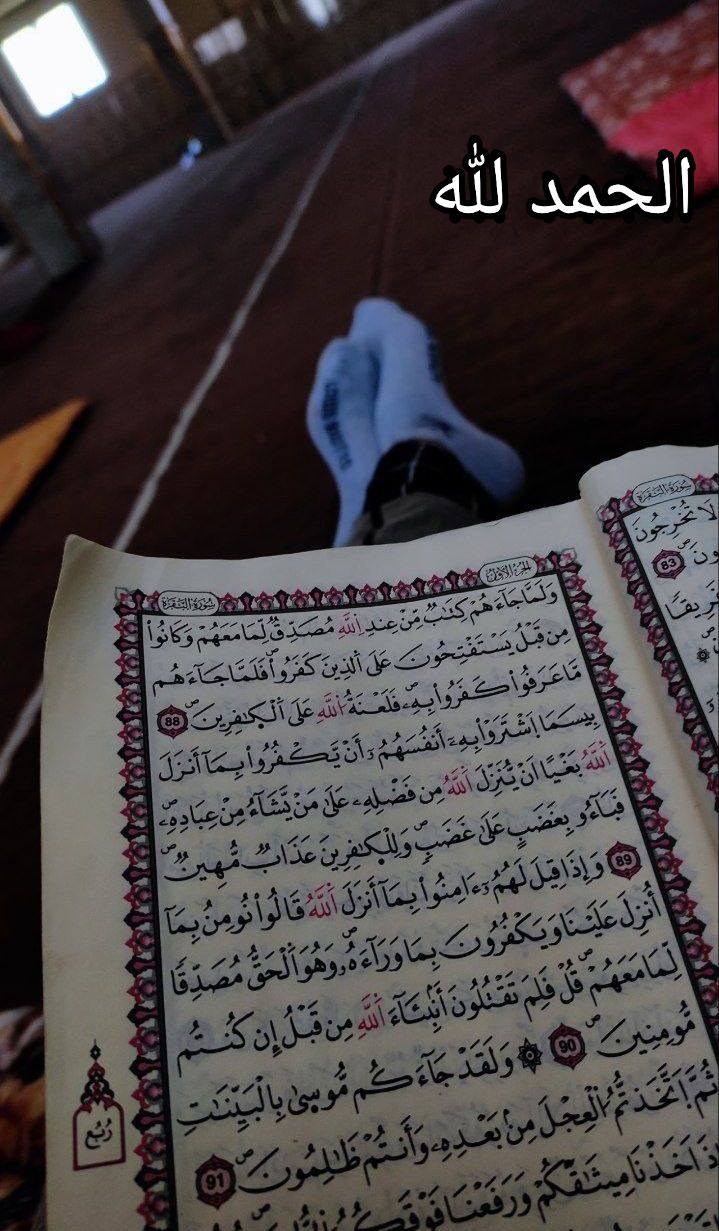 الحمد لله
سورة البقرة
لَا تُخْرِجُونَ
83
الجزء الأول
سورة البقرة
وَلَمَّا جَآءَهُمْ كِتَٰبٌ مِّنْ عِندِ اِ۬للَّهِ مُصَدِّقٌ لِّمَا مَعَهُمْ وَكَانُواْ
مِن قَبْلُ يَسْتَفْتِحُونَ عَلَى اَ۬لذِينَ كَفَرُواْ فَلَمَّا جَآءَهُم
مَّا عَرَفُواْ كَفَرُواْ بِهِۦ فَلَعْنَةُ اُ۬للَّهِ عَلَى اَ۬لْكٰ۪فِرِينَۖ 88
بِيسَمَا اَ۪شْتَرَوْاْ بِهِۦٓ أَنفُسَهُمُۥٓ أَنْ يَّكْفُرُواْ بِمَآ أَنزَلَ
اَ۬للَّهُ بَغْياً اَنْ يُّنَزِّلَ اَ۬للَّهُ مِن فَضْلِهِۦ عَلَىٰ مَنْ يَّشَآءُ مِنْ عِبَادِهِۦۖ
فَبَآءُو بِغَضَبٍ عَلَىٰ غَضَبٍۖ وَلِلْكٰ۪فِرِينَ عَذَابٌ مُّهِينٌۖ
89 وَإِذَا قِيلَ لَهُمُۥٓ ءَامِنُواْ بِمَآ أَنزَلَ اَ۬للَّهُ قَالُواْ نُومِنُ بِمَآ
أُنزِلَ عَلَيْنَا وَيَكْفُرُونَ بِمَا وَرَآءَهُۥۖ وَهُوَ اَ۬لْحَقُّ مُصَدِّقاً
لِّمَا مَعَهُمْۖ قُلْ فَلِمَ تَقْتُلُونَ أَنۢبِـَٔآءَ اَ۬للَّهِ مِن قَبْلُ إِن كُنتُم
مُّومِنِينَۖ 90 ۞ وَلَقَدْ جَآءَكُم مُّوسۭىٰ بِالْبَيِّنَٰتِ
ثُمَّ اَ۪تَّخَذتُّمُ اُ۬لْعِجْلَ مِنۢ بَعْدِهِۦ وَأَنتُمْ ظَٰلِمُونَۖ 91
اَخَذْنَا مِيثَٰقَكُمْ وَرَفَعْنَا فَوْقَكُمُ
رُبُع